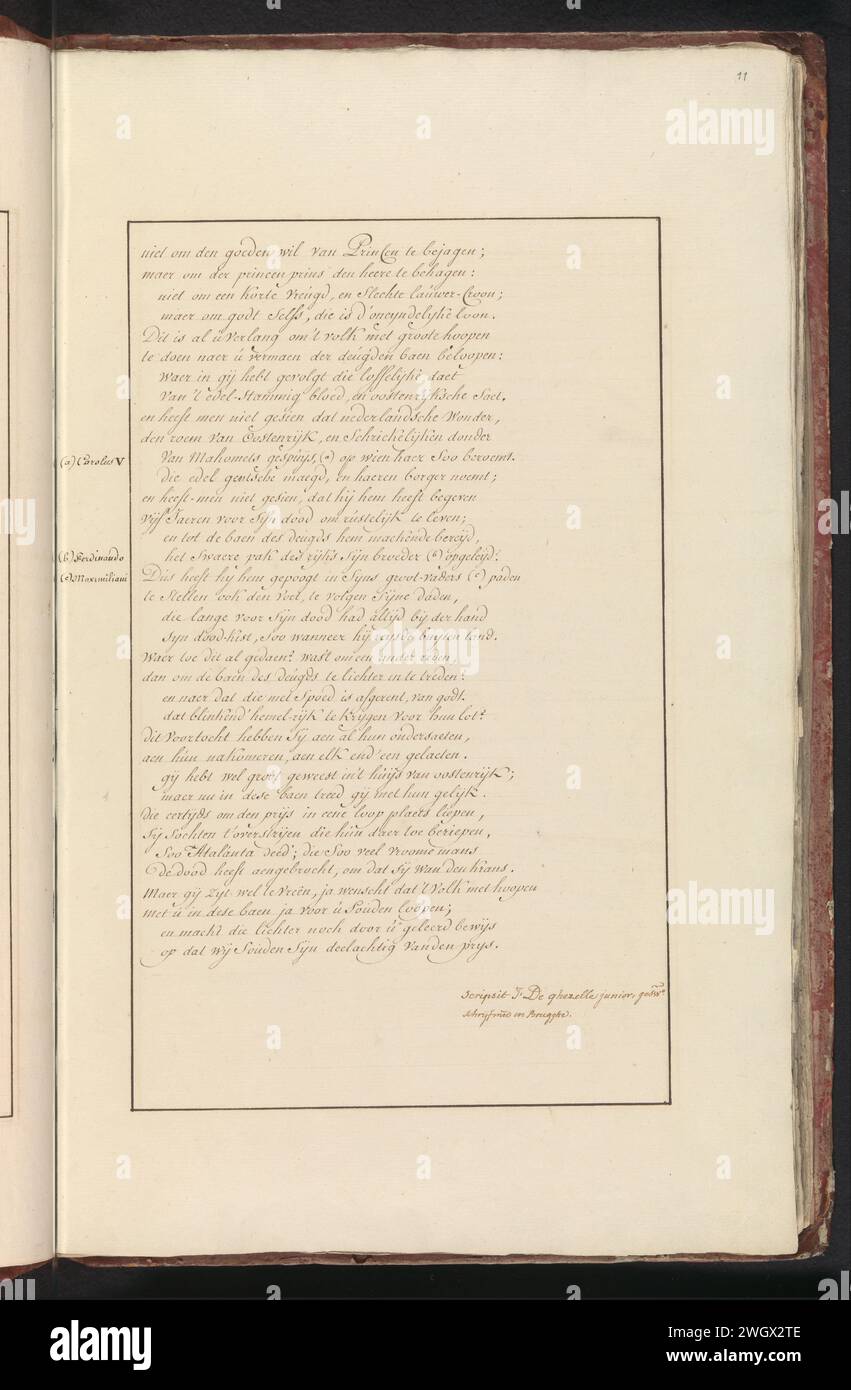 11
niet om den goeden wil van Princen te bejagen;
maer om der princen prins den heere te behagen:
niet om een korte vreugd, en slechte lauwer-Croon;
maer om godt selfs, die is d'oneyndelyke loon.
Dit is al u verlang om 't volk met groote hoopen
te doen naer u vermaen der deugden baen beloopen:
waer in gij hebt gevolgt die loffelijke daet
van 't edel-stamnig bloed, en oostenryksche saet.
en heeft men niet gesien dat nederlandsche wonder,
den roem van Oostenrijk, en schrickelijken donder
(a) Carolus V
van Mahomets gespuijs, (a) op wien haer soo beroemt.
die edel gentsche maegd, en haeren borger noemt;
en heeft-men niet gesien, dat hij hem heeft begeven
vijf Jaeren voor sijn dood om rustelijk te leven;
en tot de baen des deugds hem makende bereijd,
(b) Ferdinando
het swaere pak des rijks sijn broeder (b) opgeleijd:
(c) Maximiliani
Dus heeft hij hem gepoogt in sijns groot-vaders (c) paden
te stellen ook den voet, te volgen sijne daden,
die lange voor sijn dood had altijd bij der hand
syn dood-kist, soo wanneer hij reysde buyten land.
waer toe dit al gedaen? wast om een ander reden,
dan om de baen des deugds te lichter in te treden:
en naer dat die met spoed is afgerent, van godt.
dat blinkend' hemel-rijk te krijgen voor hun lot?
dit voortocht hebben sij aen al hun ondersaeten,
aen hun nakomeren, aen elk end' een gelaeten.
gij hebt wel groot geweest in't huijs van oostenrijk;
maer nu in dese baen treed gij met hun gelijk.
die eertijds om den prijs in eene loop plaets liepen,
sij sochten t'overstrijen die hun daer toe beriepen,
soo Atalanta deed; die soo veel vroome mans
de dood heeft aengebrocht, om dat sij wan den krans.
Maer gij zijt wel te vreên, ja wenscht dat 't volk met hoopen
met u in dese baen ja voor u souden loopen;
en mackt die lichter noch door uw geleerd bewijs
op dat wij souden sijn deelachtig van den prys.
Scripsit J. De ghezelle junior,
schryfmre in Brugghe.
alamy
Image ID: 2WGX2TE
www.alamy.com